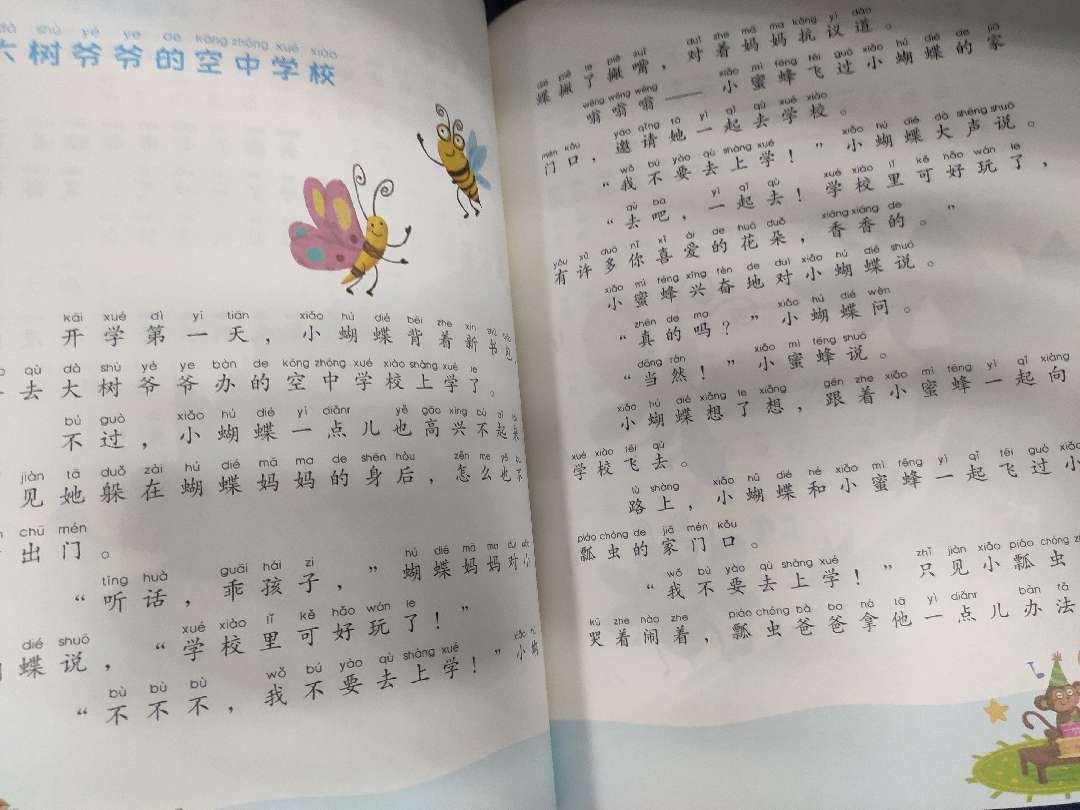 dà shù yé ye de kōng zhōng xué xiào
大树爷爷的空中学校
kāi xué dì yì tiān xiǎo hú dié bēi zhe xīn
开学第一天，小蝴蝶背着新书包，
qù dà shù yé ye bàn de kōng zhōng xué xiào shàng xué le
去大树爷爷办的空中学校上学了。
bú guò xiǎo hú dié yì diǎnr yě gāo xìng bù qǐ
不过，小蝴蝶一点儿也高兴不起来
jiàn tā duǒ zài hú dié mā ma de shēn hòu zěn me yě
见她躲在蝴蝶妈妈的身后，怎么也不
chū mén
出门。
tīng huà guāi hái zi hú dié mā ma duì
“听话，乖孩子，”蝴蝶妈妈对
dié shuō xué xiào lǐ kě hǎo wán le
蝶说，“学校里可好玩了！”
bù bù bù wǒ bú yào qù shàng xué
“不不不，我不要去上学！”小蝴
dié piě le piě zuǐ duì zhe mā ma kàng yì dào
蝶撇了撇嘴，对着妈妈抗议道。
wēng wēng wēng xiǎo mì fēng fēi guò xiǎo hú dié de jiā
嗡嗡嗡——小蜜蜂飞过小蝴蝶的家
mén kǒu yāo qǐng tā yì qǐ qù xué xiào
门口，邀请她一起去学校。
wǒ bú yào qù shàng xué xiǎo hú dié dà shēng shuō
“我不要去上学！”小蝴蝶大声说。
qù ba yì qǐ qù xué xiào lǐ kě hǎo wán le
“去吧，一起去！学校里可好玩了，
yǒu xǔ duō nǐ xǐ ài de huā duǒ xiāng xiāng de
有许多你喜爱的花朵，香香的。”
xiǎo mì fēng xīng fèn de duì xiǎo hú dié shuō
小蜜蜂兴奋地对小蝴蝶说。
zhēn de ma xiǎo hú dié wèn
“真的吗？”小蝴蝶问。
dāng rán xiǎo mì fēng shuō
“当然！”小蜜蜂说。
xiǎo hú dié xiǎng le xiǎng gēn zhe xiǎo mì fēng yì qǐ xiàng
小蝴蝶想了想，跟着小蜜蜂一起向
xué xiào fēi qù
学校飞去。
lù shàng xiǎo hú dié hé xiǎo mì fēng yì qǐ fēi guò xiǎo
路上，小蝴蝶和小蜜蜂一起飞过小
piáo chóng de jiā mén kǒu
瓢虫的家门口。
wǒ bú yào qù shàng xué zhǐ jiàn xiǎo piáo chóng
“我不要去上学！”只见小瓢虫
kū zhe nào zhe piáo chóng bà ba ná tā yì diǎnr bàn fǎ
哭着闹着，瓢虫爸爸拿他一点儿办法